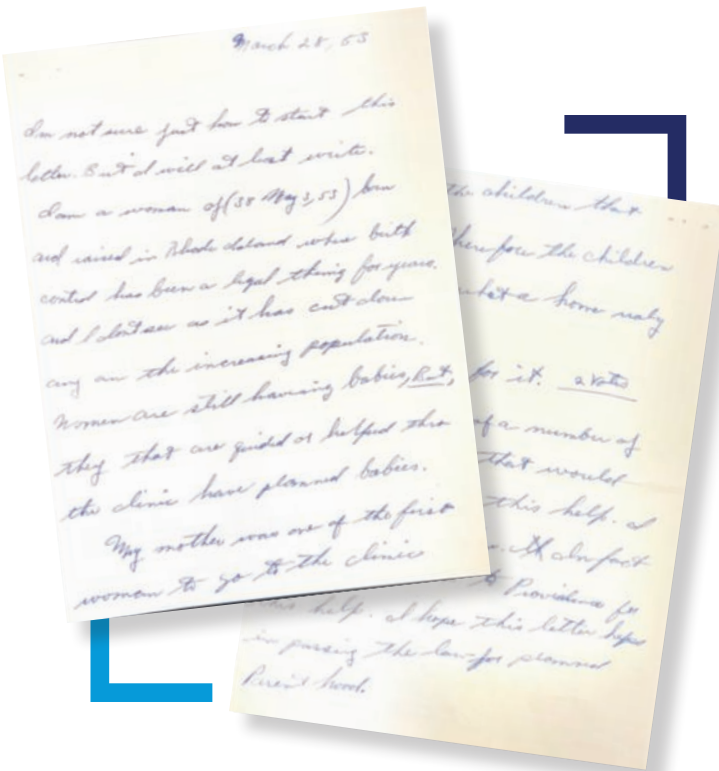 March 28, 53
I'm not sure just how to start this
letter. But I will at least write.
I am a woman of (38 May 3, 53) born
and raised in Rhode Island where birth
control has been a legal thing for years.
and I don't see as it has cut down
any on the increasing population.
Women are still having babies, But,
they that are guided or helped thro
the clinic have planned babies.
My mother was one of the first
woman to go to the clinic
the children that
therefore the children
what a home
for it. 2 Votes
of a number of
that would
this help. I
In fact
to Providence for
this help. I hope this letter helps
in passing the law for planned
Parenthood.